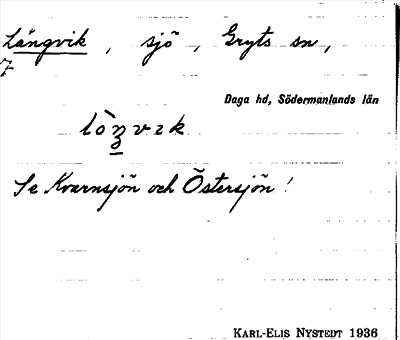 Långvik, sjö, Gryts sn,
7
Daga hd, Södermanlands län
Se Kvarnsjön och Östersjön!
KARL-ELIS NYSTEDT 1936